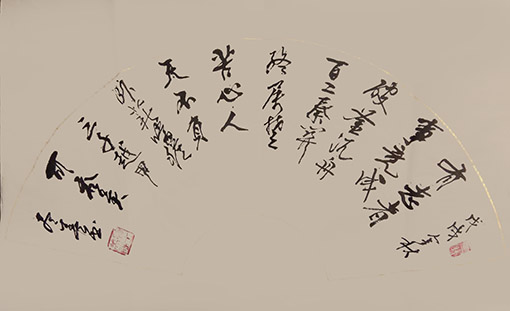 戊戌
有志者
事竟成
破釜沉舟
百二秦关
终属楚
苦心人
天不负
卧薪尝胆
三千越甲
可吞吴